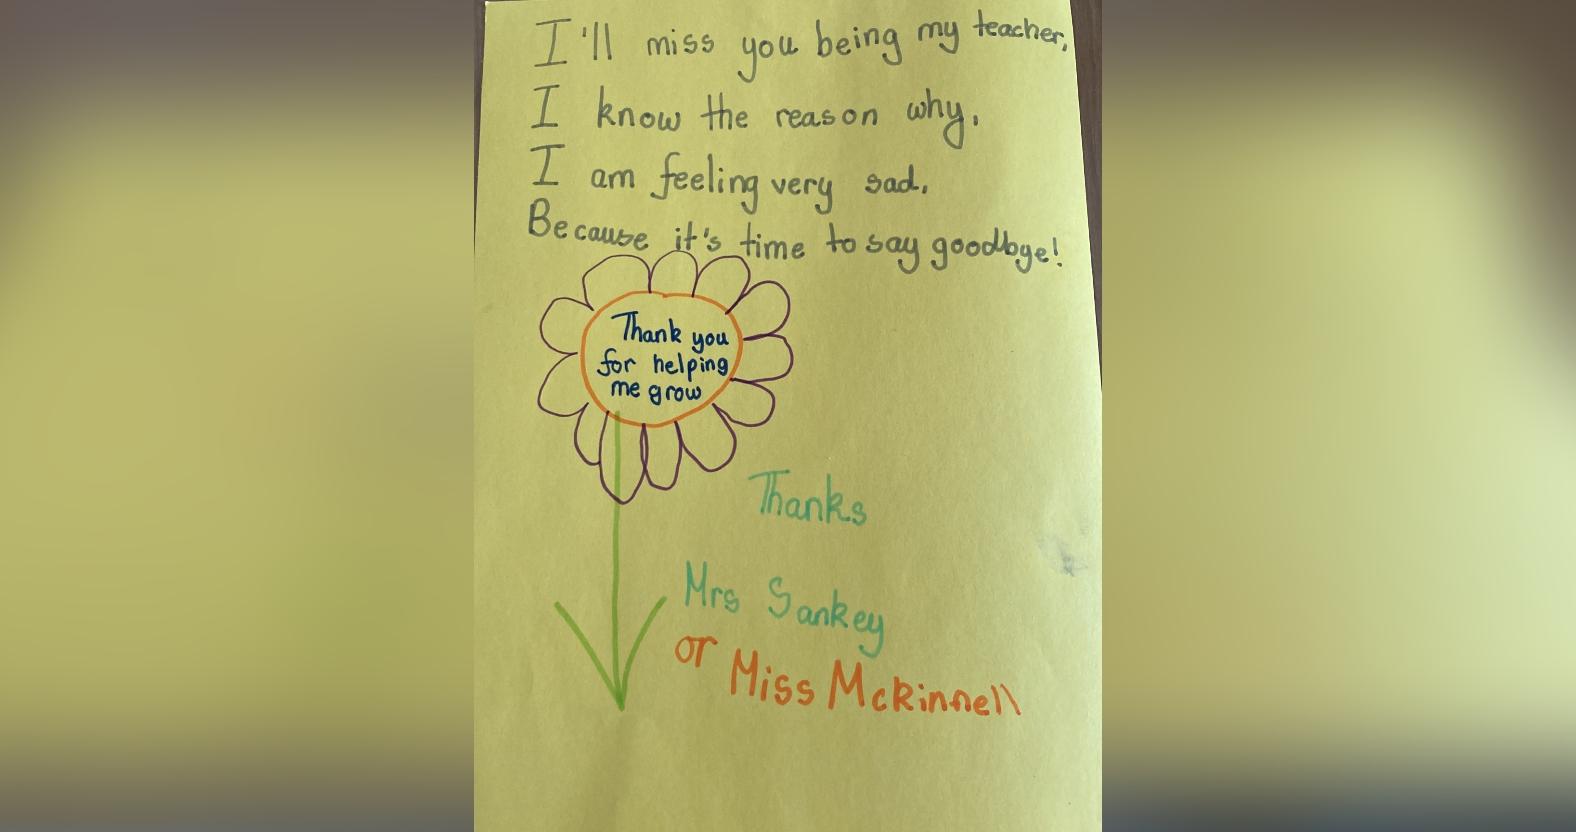 I'll miss you being my teacher,
I know the reason why,
I am feeling very sad,
Because it's time to say goodbye!
Thank you
for helping
me grow
Thanks
Mrs Sankey
or Miss McKinnell